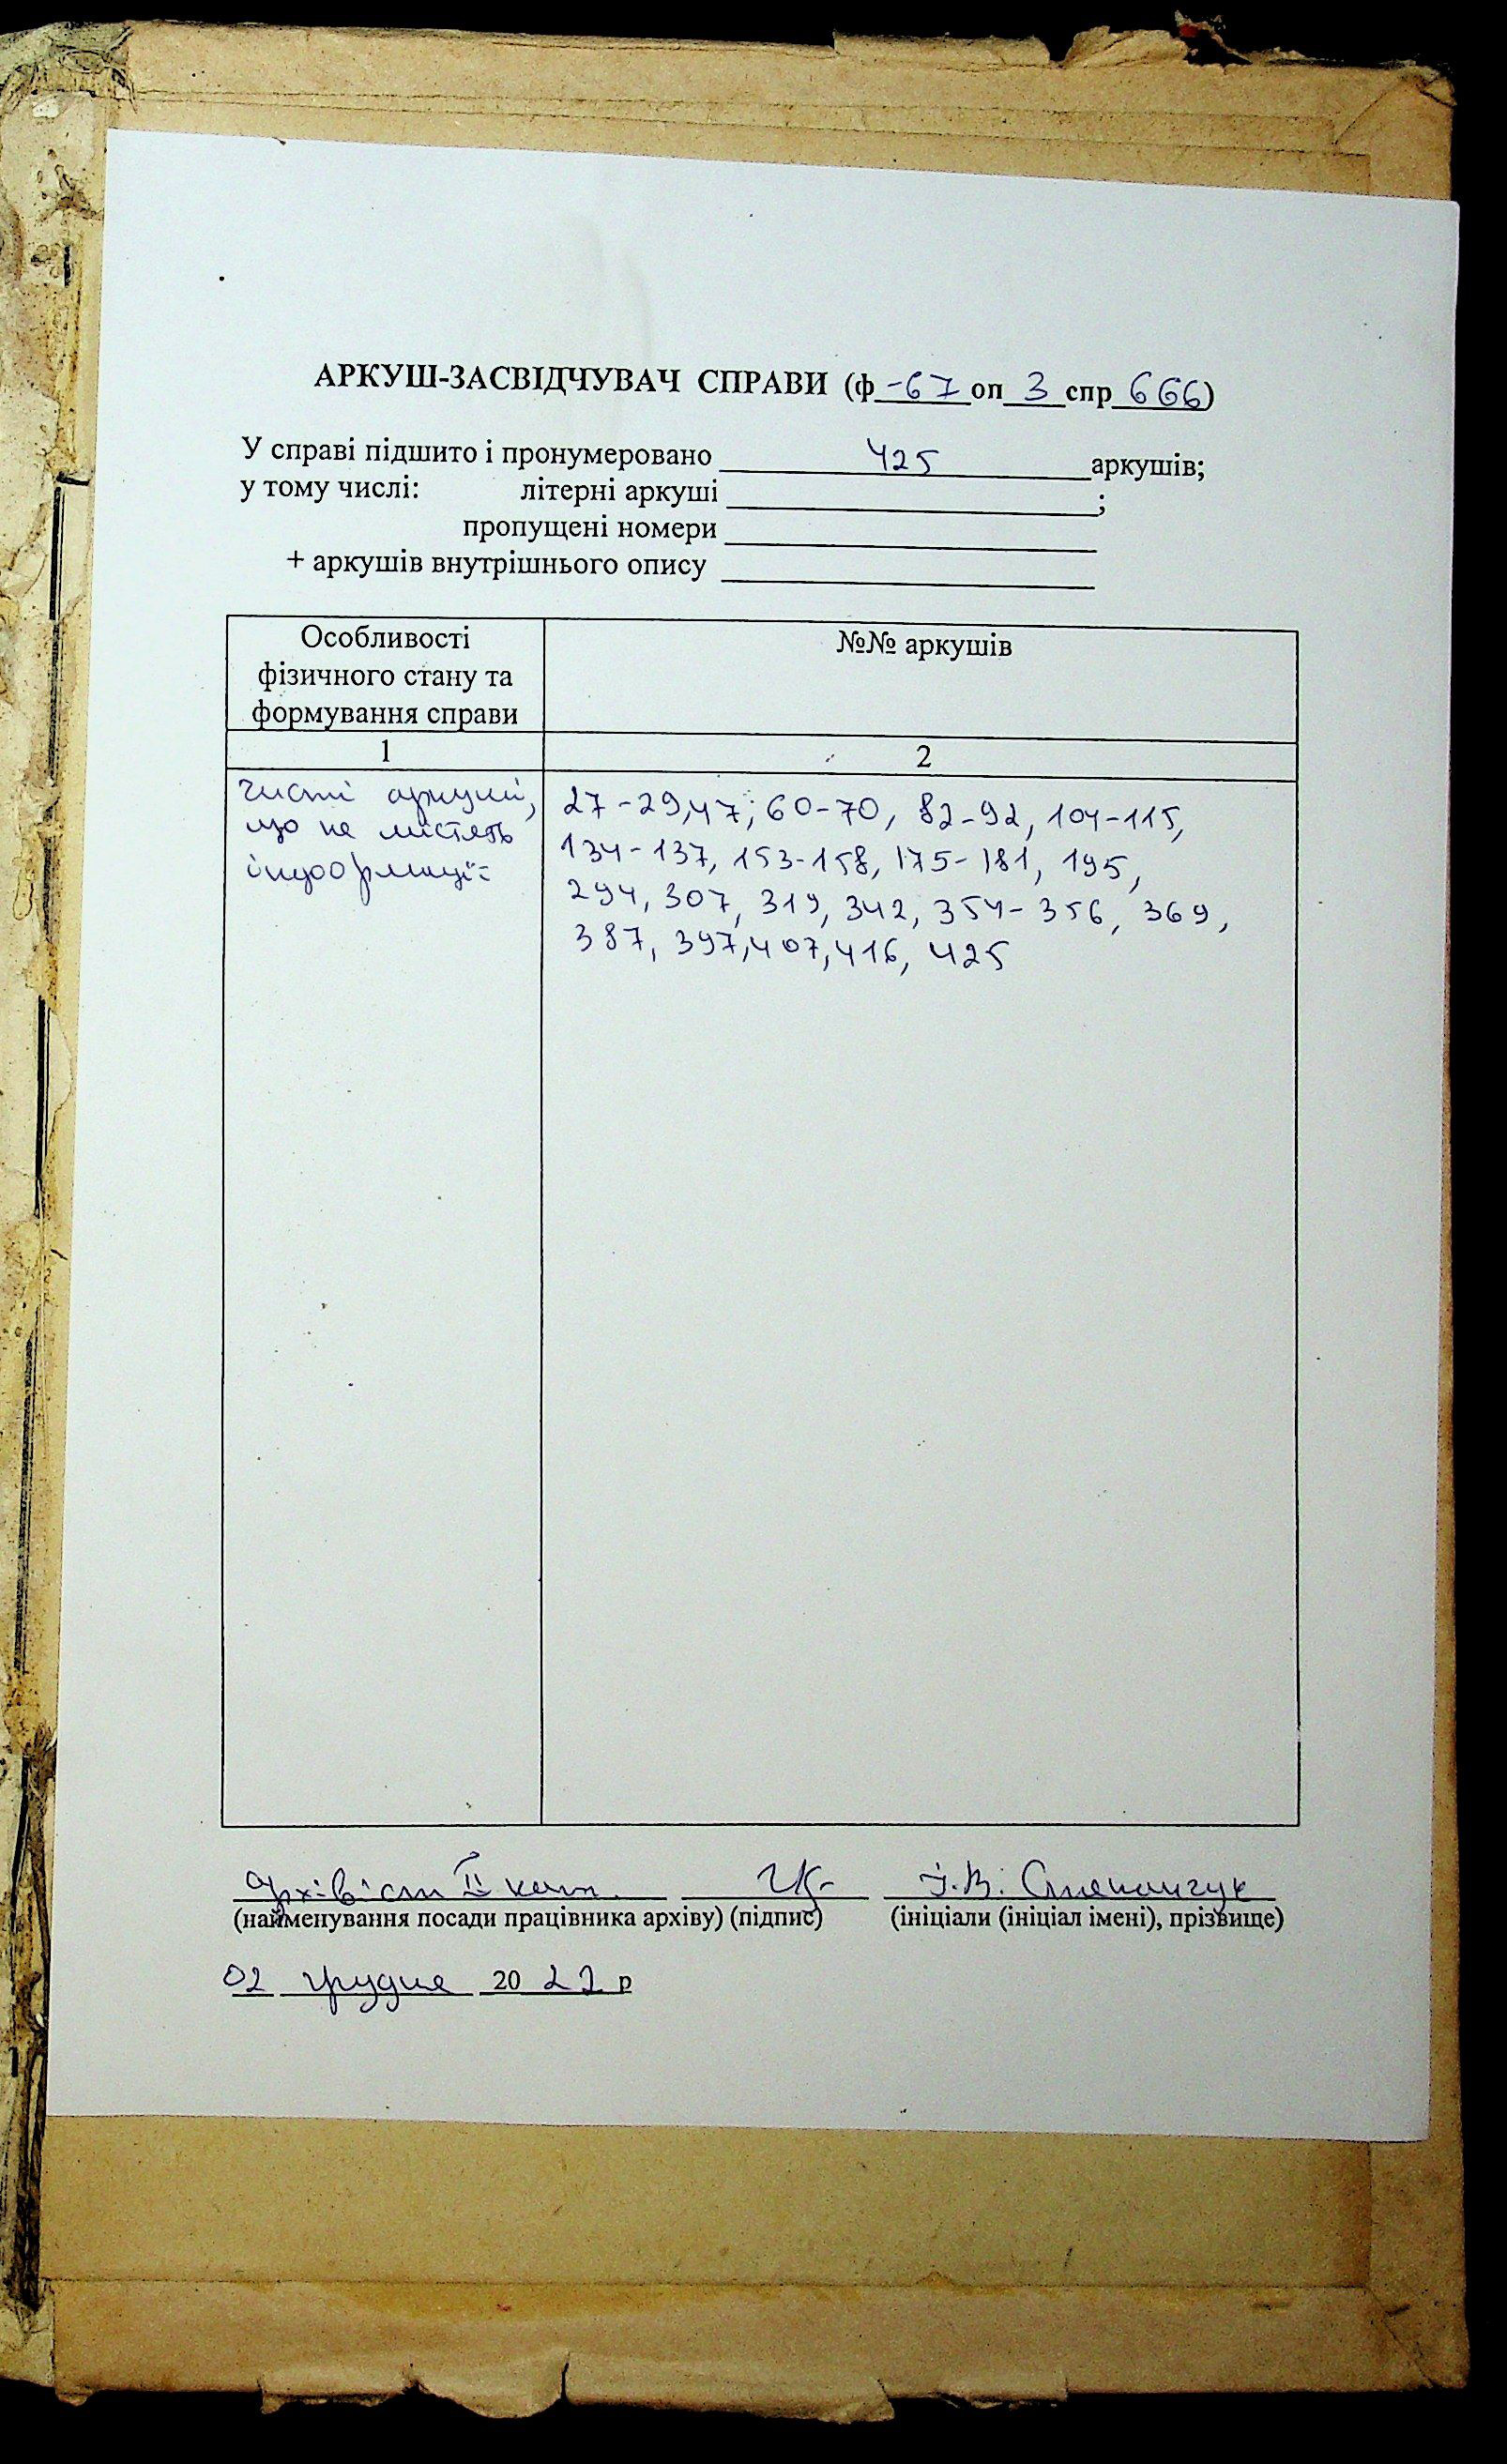 АРКУШ-ЗАСВІДЧУВАЧ СПРАВИ (ф -67 оп 3 спр 666)
У справі підшито і пронумеровано 425 аркушів;
у тому числі: літерні аркуші ;
пропущені номери
+ аркушів внутрішнього опису
Особливості фізичного стану та формування справи
№№ аркушів
1 2
чисті аркуші,
що не містять
інформації
27-29,47; 60-70, 82-92, 104-115,
134-137, 153-158, 175-181, 195,
294, 307, 319, 342, 354-356, 369,
387, 397, 407, 416, 425
архівіст ІІ кат. І.В. Степанчук
(найменування посади працівника архіву) (підпис) (ініціали (ініціал імені), прізвище)
02 грудня 2022 р